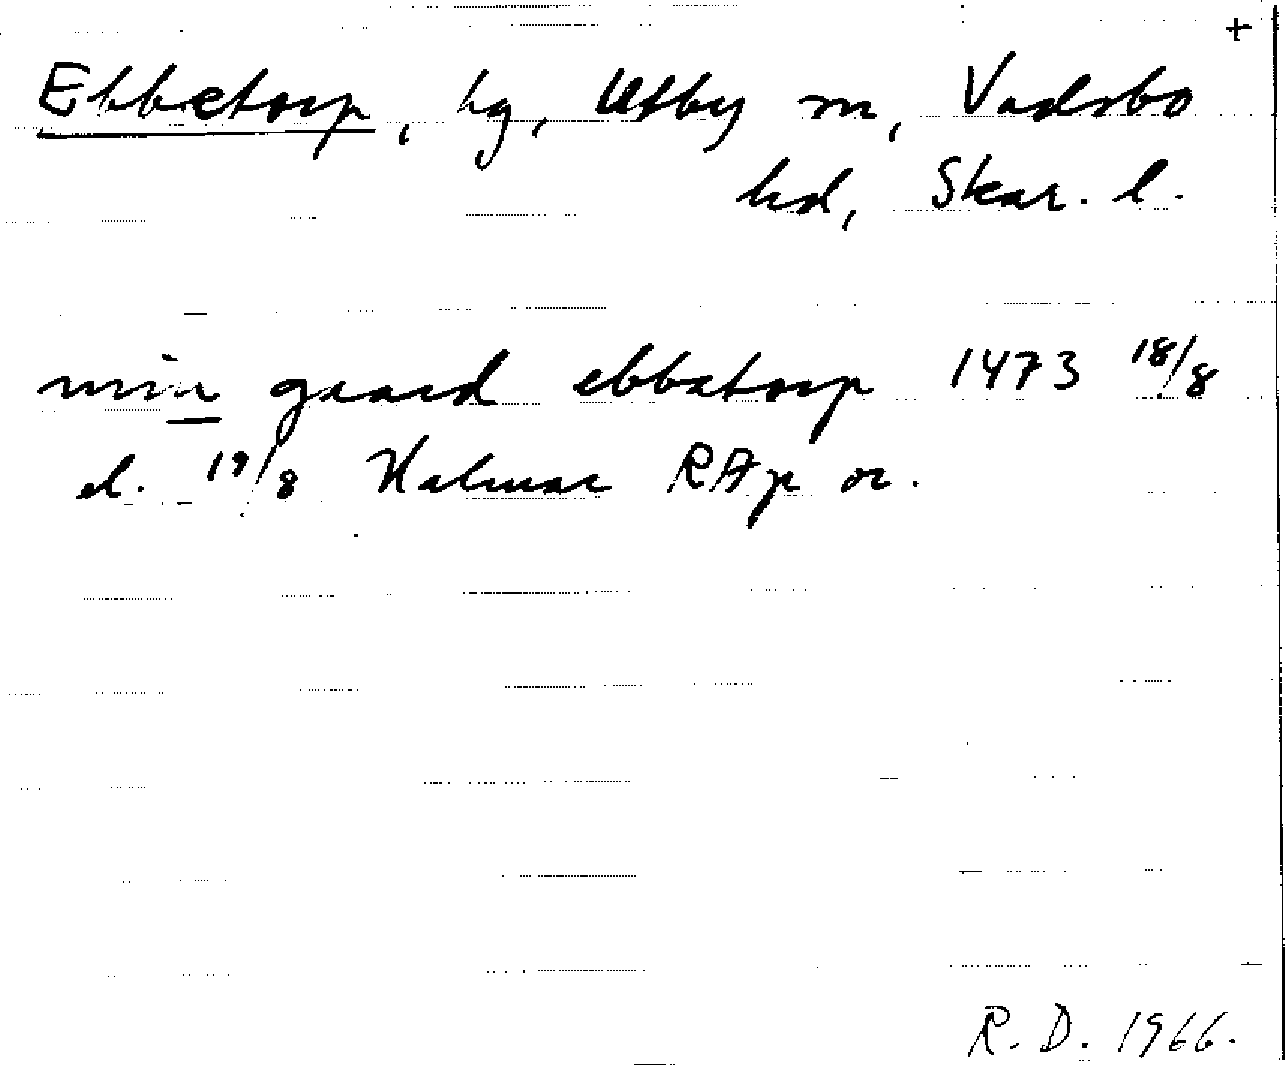 +
Ebbetorp, hg, Utby sn, Vadsbo
hd, Skar. l.
min gaard ebbatorp 1473 18/8
el. 19/8 Kalmar RAp or.
R. D. 1966.